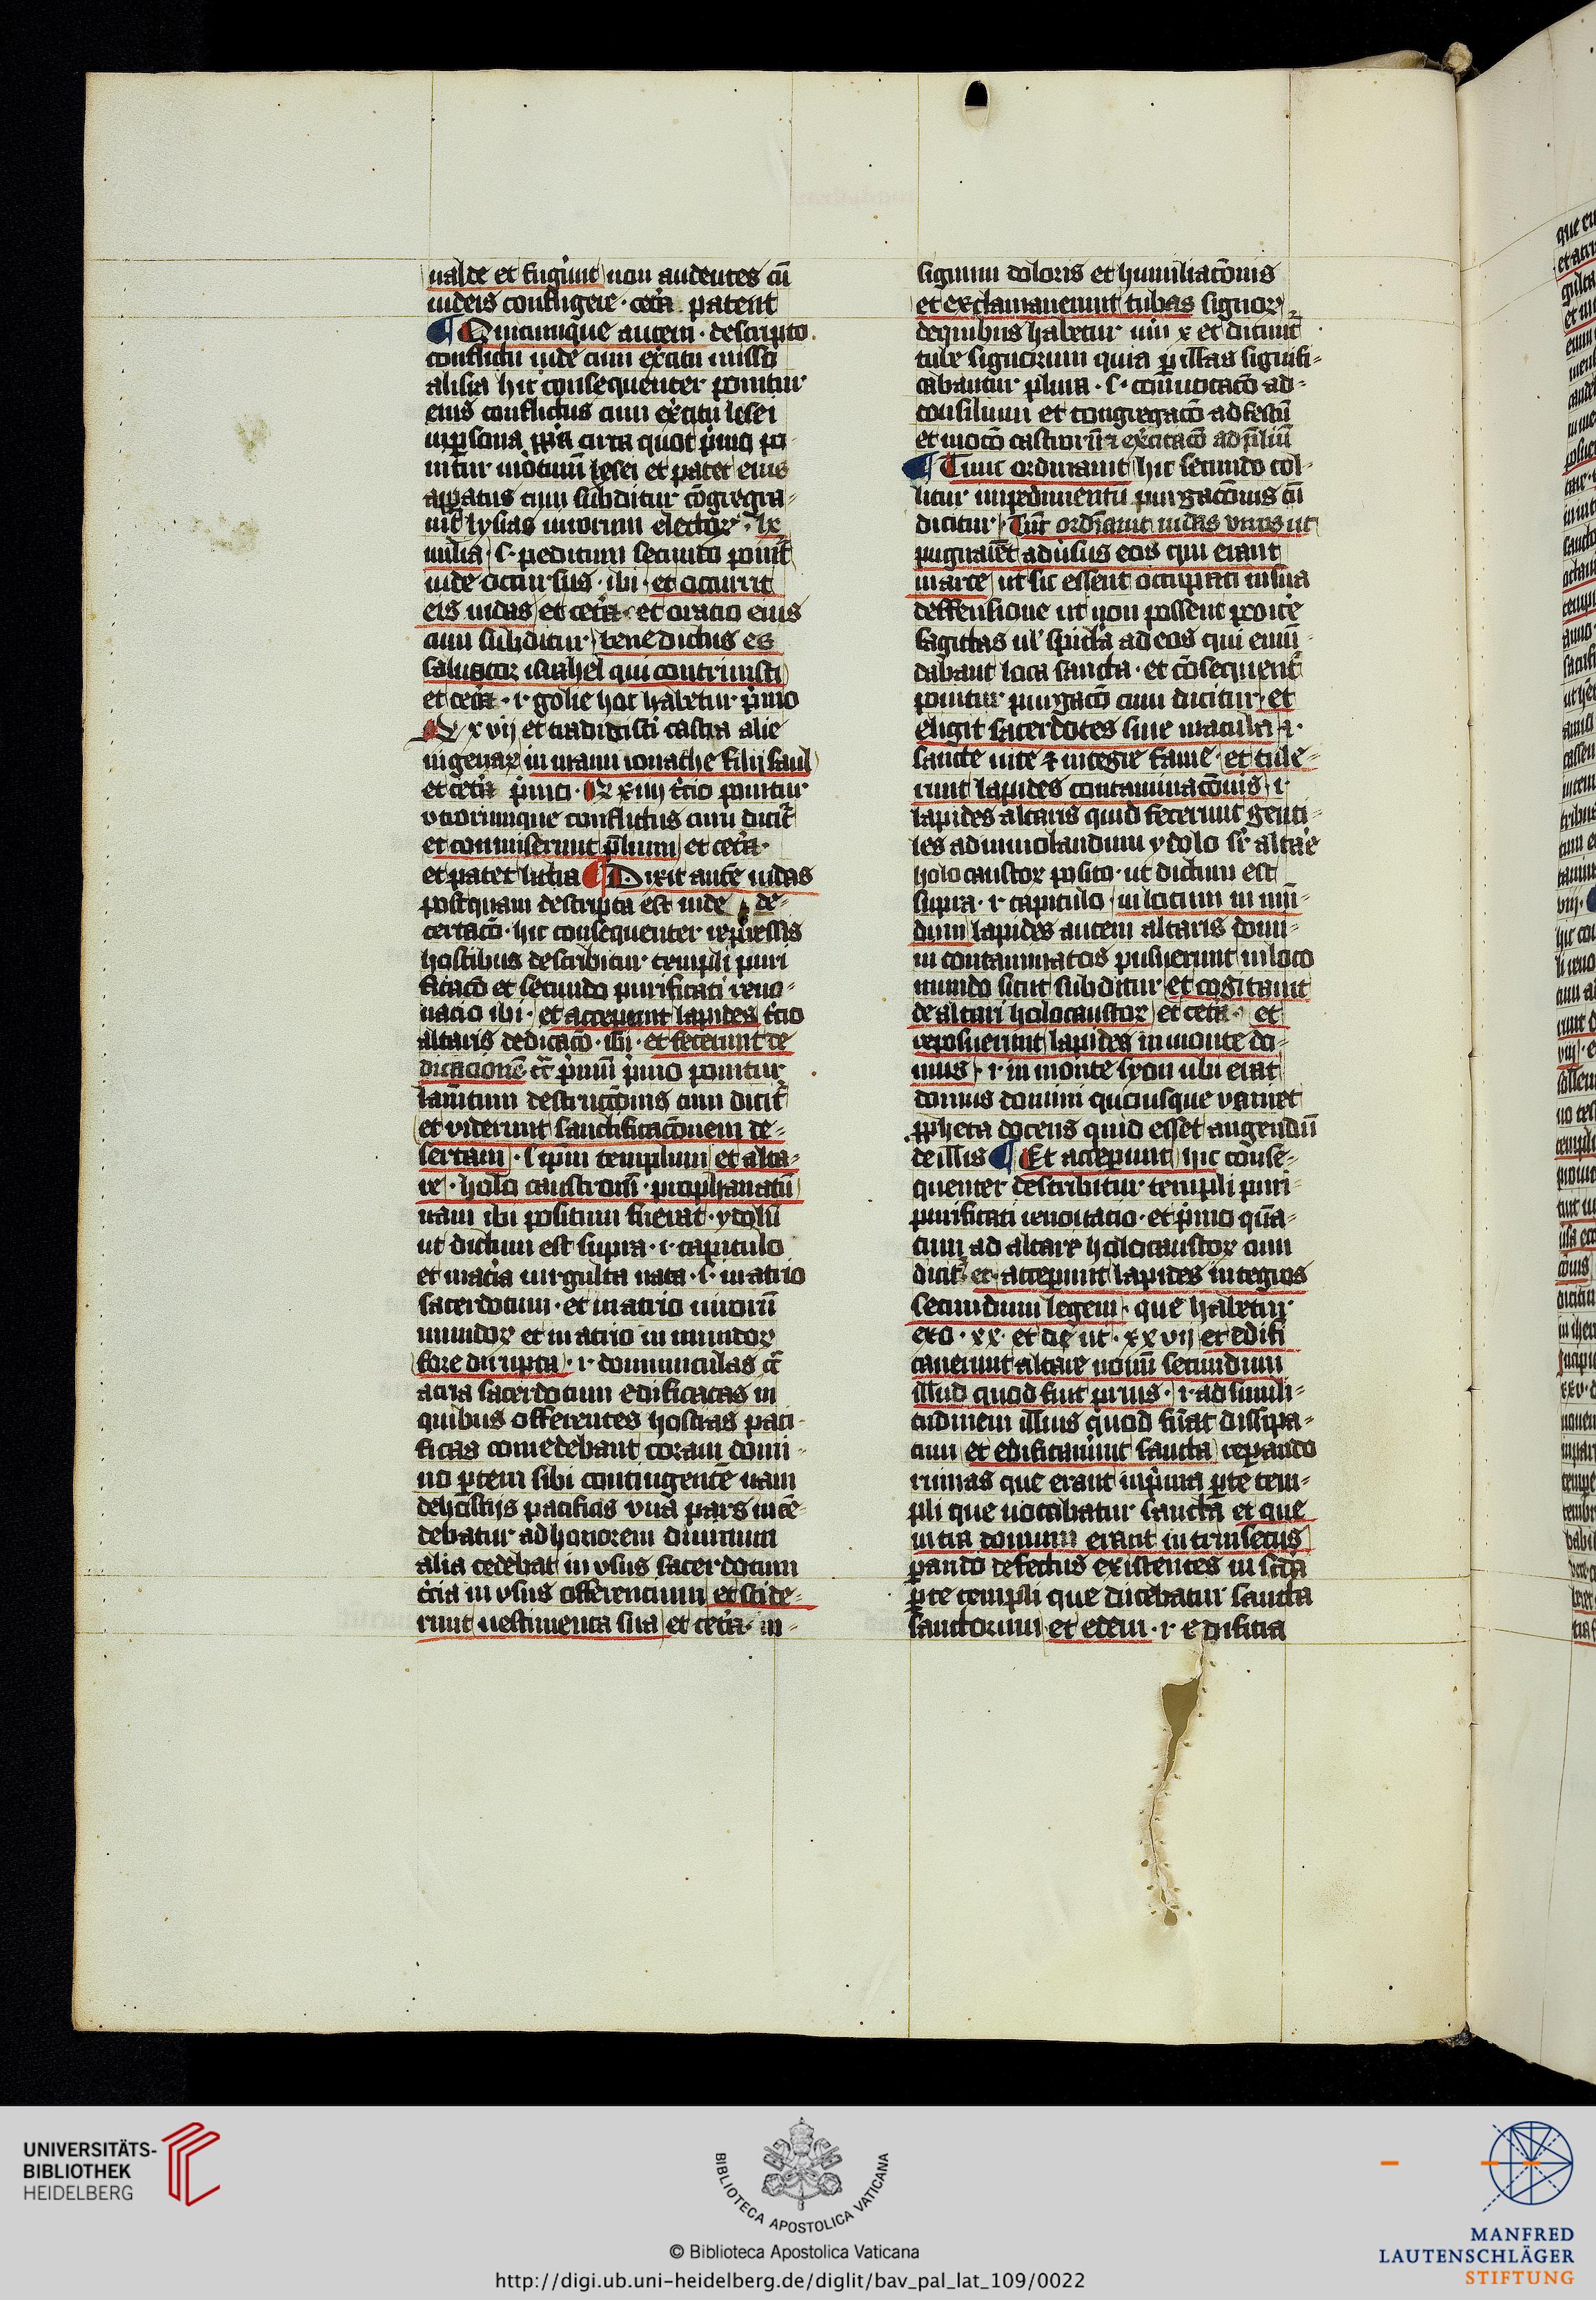 ualde et fugiūt non audentes cū
iudeis confligere · cetͣa patent
¶ Quicumque autem · descripto
conflictu iude cum exͨitu misso
alisia hic consequenter ponitur
eius conflictus cum exͨitu lesei
in ꝑsona ꝓpͥa circa quot pͥmo po-
nitur motiuū lesei et patet eius
apparatus cum subditur cōgregra-
uit̄ lysias uirorum electoꝝ · lx
milia · s · peditum secundo ponit̄
iude occursus · ibi · et occurrit
eis iudas et cetͣa · et oratio eius
cum subditur benedictus es
saluator israhel qui contriuisti
et cetͣa · i · golie hoc habetur pͥmo
R xvij et tradidisti castra alie
nigenaꝝ in manu ionathe filij saul
et cetͣa pͥmi · R xiiij tͨio ponitur
utriorumque conflictus cum dicit̄
et commiserunt p̄lium et cetͣa ·
et patet lictͣa ¶ Dixit aut̄e iudas
postquam descripta est iude de-
certacō · hic consequenter rep̄ressis
hostibus describitur templi puri
ficacō et secundo purificati reno-
uacio ibi · et acceperunt lapides tͨio
altaris dedicacō · ibi · et fecerunt de
dicacionē cͨ pͥmū pͥmo ponitur
lam̄tum destructōnis cum dicit̄
et viderunt sanctificacōnem de-
sertam · s ip̄m templum et alta-
re · holo caustorū · prophanatū
nam ibi positum fuerat · ydolū
ut dictum est supra · i · capitulo
et in atͥa uirgulta nata · s · in atrio
sacerdotum · et in atrio uirorū
mundoꝝ et in atrio in mundoꝝ
fore dirupta · i · domunculas cͨ
atria sacerdotum edificatas in
quibus offerentes hostias paci-
ficas comedebant coram domi-
no ꝑtem sibi contingentē nam
de hostijs pacificis vna pars incē-
debatur ad honorem diuinum
alia cedebat in vsus sacerdotum
tͨia in vsus offerencium et scide-
runt uestimenta sua et cetͣa · in-
signum doloris et humiliacōnis
et exclamauerunt tubas signoꝝ
de quibus habetur nūi x et dicunt̄
tube signorum quia ꝑ illas signifi-
cabantur plura · s · conuocacō ad-
consilium et congregacō ad festū
et mocō castrorū ⁊ excitacō ad p̄liū
¶ Tunc ordinauit hic secundo tol-
litur impedimentū purgacōnis cū
dicitur · Tūc ordīauit iudas viros ut
pugnarēt adūsus eos qui erant
in arce ut sic essent occupati in sua
deffensione ut non possent proicͤe
sagittas ul' spicl̄a ad eos qui emū
dabant loca sancta · et cōsequent̄
ponitur purgacō cum dicitur et
eligit sacerdotes sine macula · i ·
sancte uite ⁊ integre fame · et tule-
runt lapides contaminacōnis · i ·
lapides altaris quid fecerunt genti-
les ad immolandum ydolo sr̄ altaͬe
holo caustoꝝ posito · ut dictum est
supra · i · capitulo in locum in mū-
dum lapides autem altaris domi-
ni contaminatos pusuerunt in loco
mundo sicut subditur et cogitauit
de altari holocaustoꝝ et cetͣa · et
reposuerunt lapides in monte do-
mus · i · in monte syon ubi erat
domus domini quousque ueniret
ꝓpheta docens quid esset augendū
de illis ¶ Et acceperunt hic conse-
quenter describitur templi puri-
purificati renouatio · et pͥmo quā-
tum ad altare holocaustoꝝ cum
dicit̄ et · acceperunt lapides integros
secundum legem · que habetur
exo · xx · et deut · xxvij et edifi
cauerunt altare nouū secundum
illud quod fuit prius · i · ad simili-
tudinem illius quod fuͬat dissipa-
tum et edificauer̄unt sancta reparando
ruinas que erant in pͥma ꝑte tem-
pli que uocabatur sancta et que
intra domum erant in trinsecus
ꝑando defectus existentes in scd̄a
ꝑte templi que dicebatur sancta
sanctorum et edem · i · edificia
UNIVERSITÄTS-
BIBLIOTHEK
HEIDELBERG
BIBLIOTECA APOSTOLICA VATICANA
© Biblioteca Apostolica Vaticana
http://digi.ub.uni-heidelberg.de/diglit/bav_pal_lat_109/0022
MANFRED
LAUTENSCHLÄGER
STIFTUNG